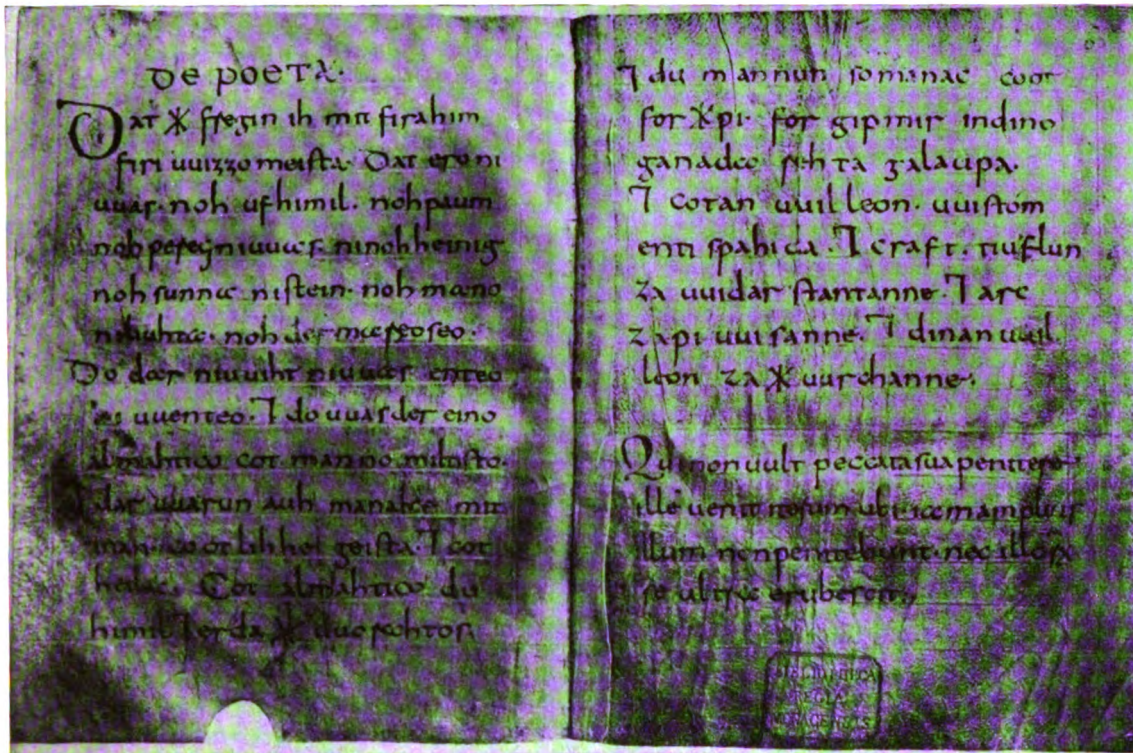 De poeta.
Dat ᚷ fregin ih mit firahim
firi uuizzo meista. Dat ero ni
uuas. noh ufhimil. noh paum
noh pereg ni uuas. ninoh heinig
noh sunna nistein. noh mano
niliuhta. noh der mareo seo.
Do dar niuuiht niuuas enteo
ni uuenteo. ⁊ do uuas der eino
almahtico cot manno miltisto.
⁊ dar uuarun auh manake mit
inan. cootlihhe geista. ⁊ cot
heilac. Cot almahtico du
himil ⁊ erda ᚷ uuorahtos.
⁊ du mannun somanac coot
for ᚷpi. for gipmir indino
ganada rehta galaupa.
⁊ cotan uuilleon. uuistóm
enti spahida. ⁊ craft. tiuflun
za uuidar stantanne. ⁊ arc
zapi uuisanne. ⁊ dinan uuil
leon za ᚷ uurchanne.
Qui non uult peccata sua penitere
ille uenit iterum ubi iam amplius
illum non penitebunt. nec illorum
se ultra erubescit.
BIBLIOTHECA
REGIA
MONACENSIS